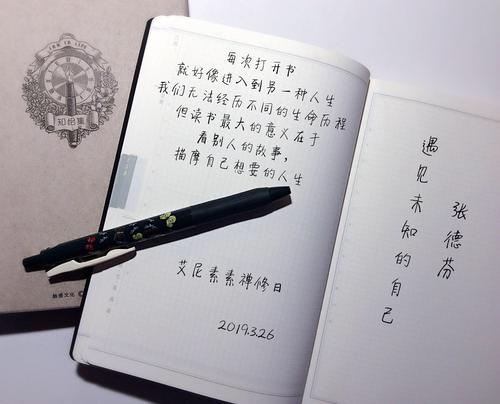 每次打开书
就好像进入到另一种人生
我们无法经历不同的生命历程
但读书最大的意义在于
看别人的故事,
描摩自己想要的人生
艾尼素素禅修日
2019.3.26
遇见未知的自己
张德芬
知恰集
触感文化